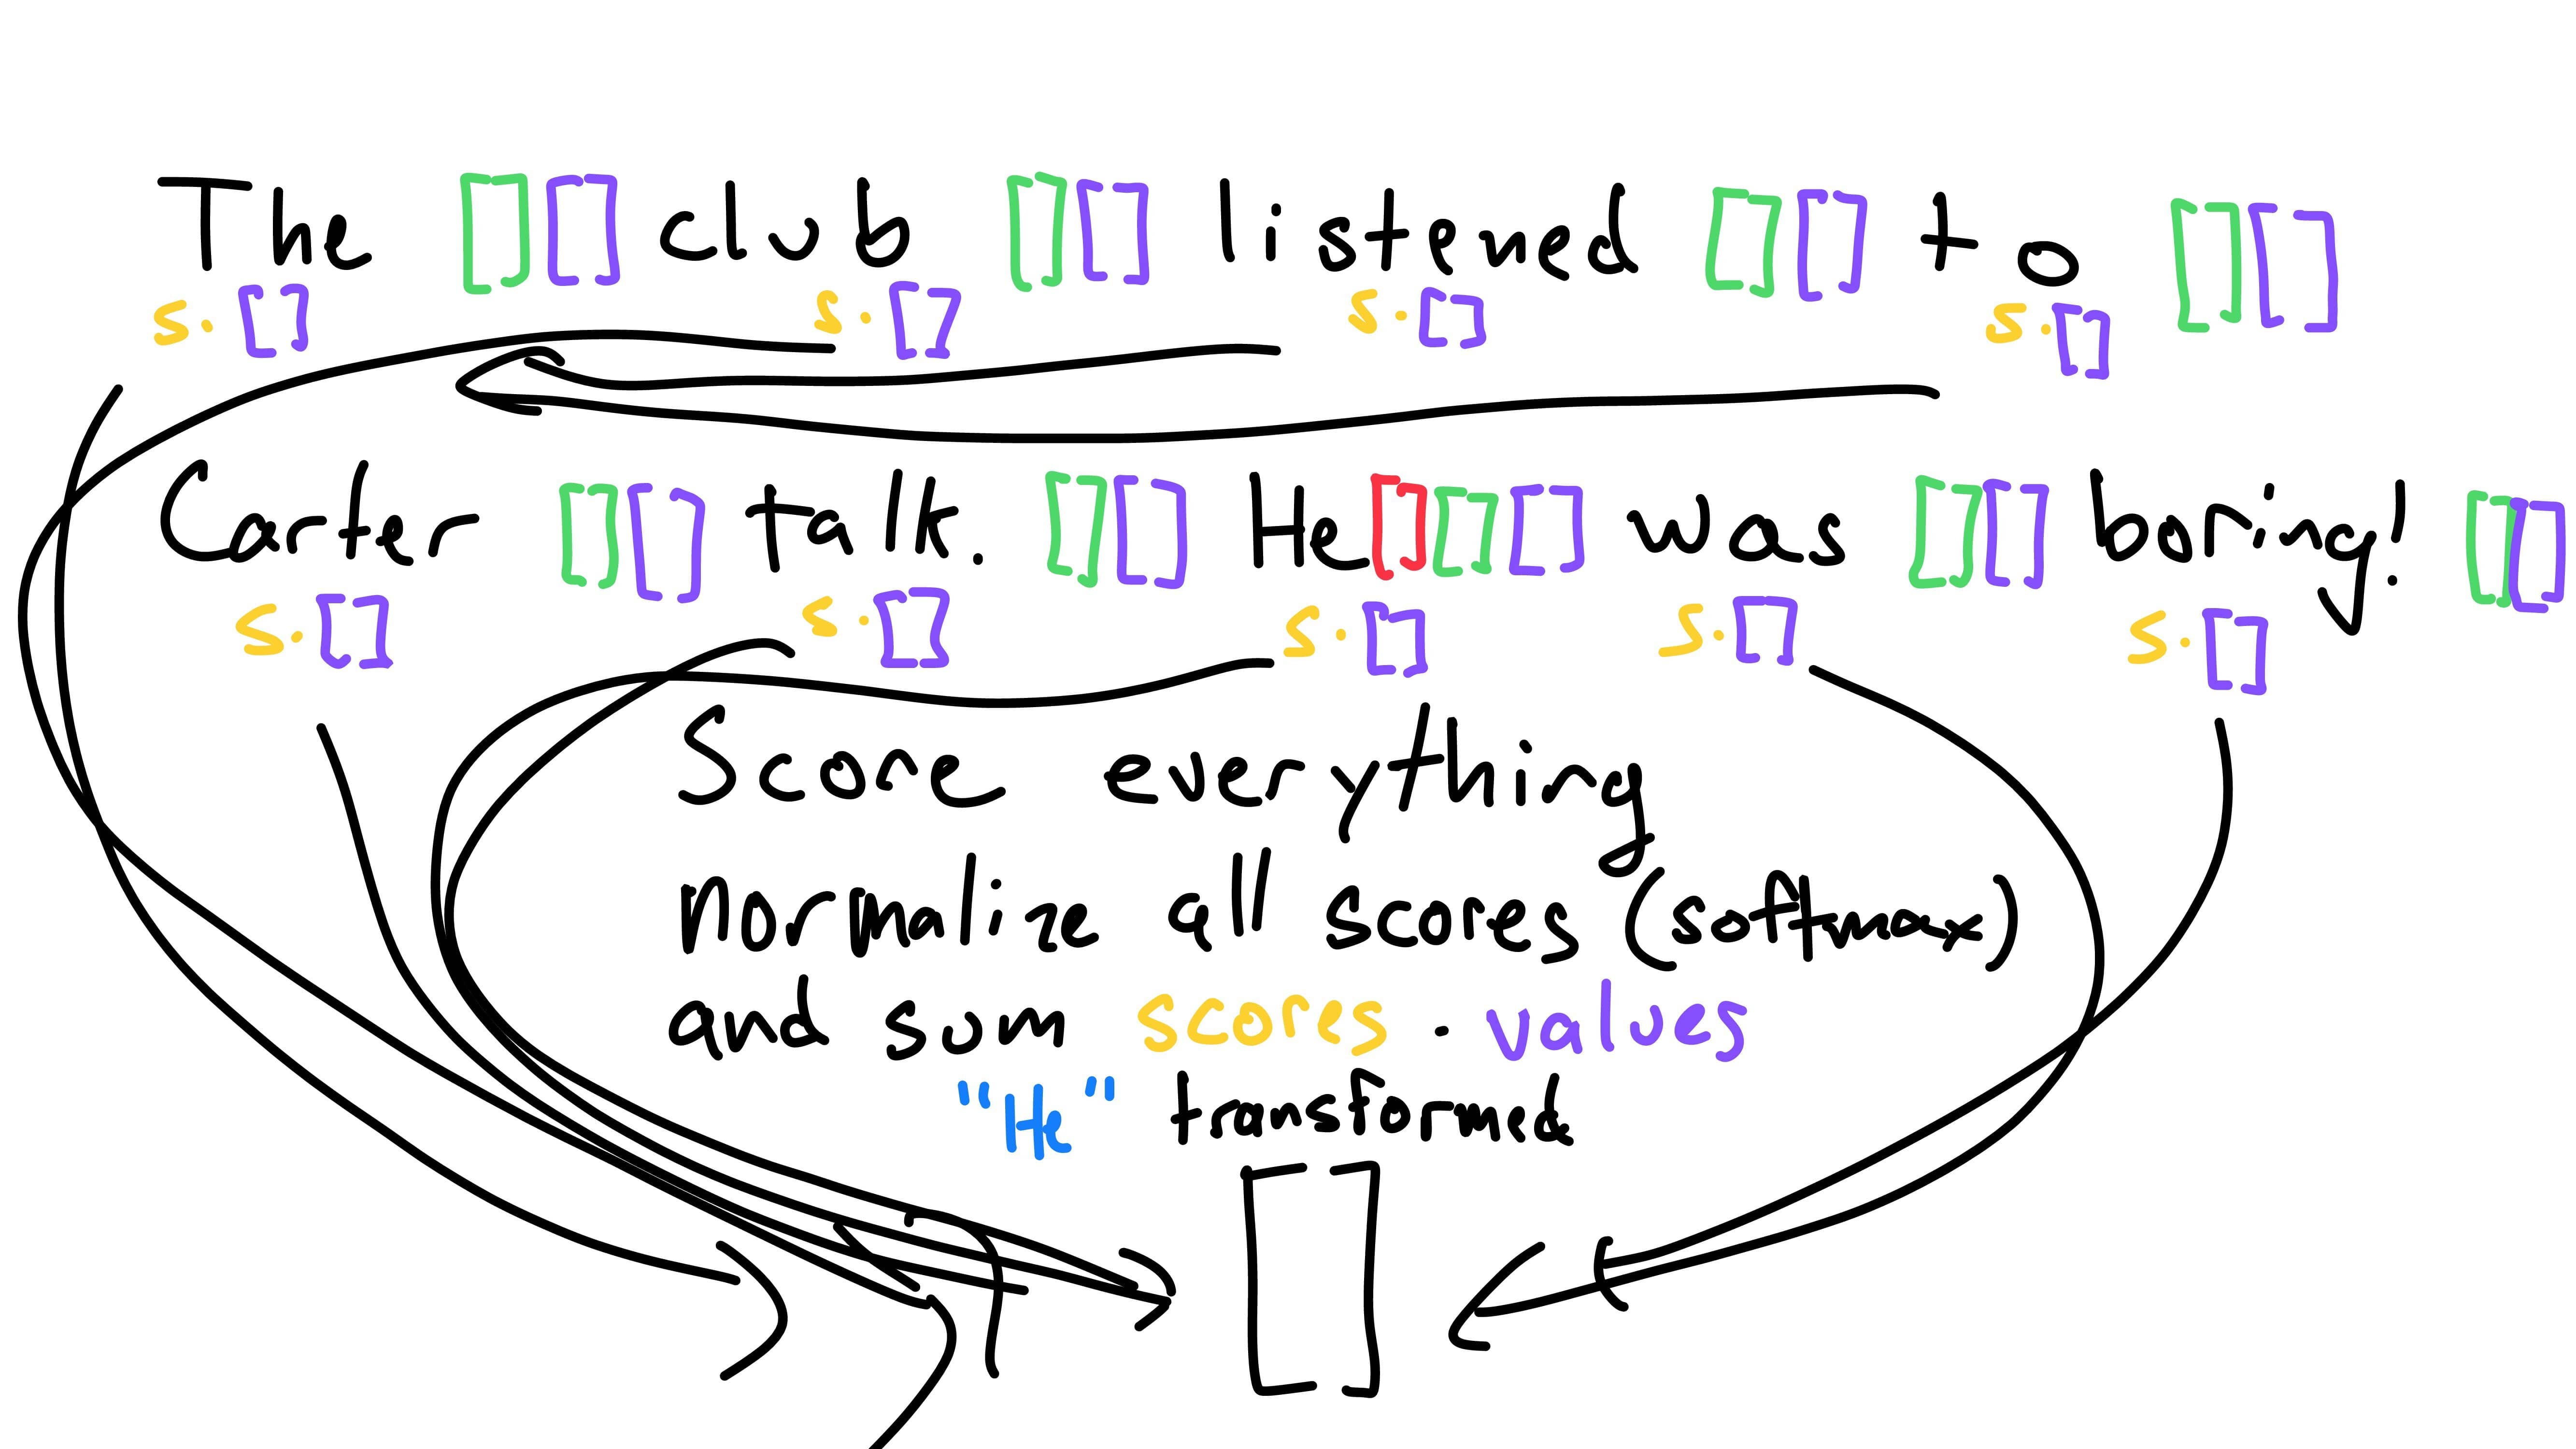 The [] [] club [] [] listened [] [] to [] []
s · [] s · [] s · [] s · []
Carter [] [] talk. [] [] He [] [] [] was [] [] boring! [] []
s · [] s · [] s · [] s · [] s · []
Score everything
normalize all scores (softmax)
and sum scores · values
"He" transformed
[ ]